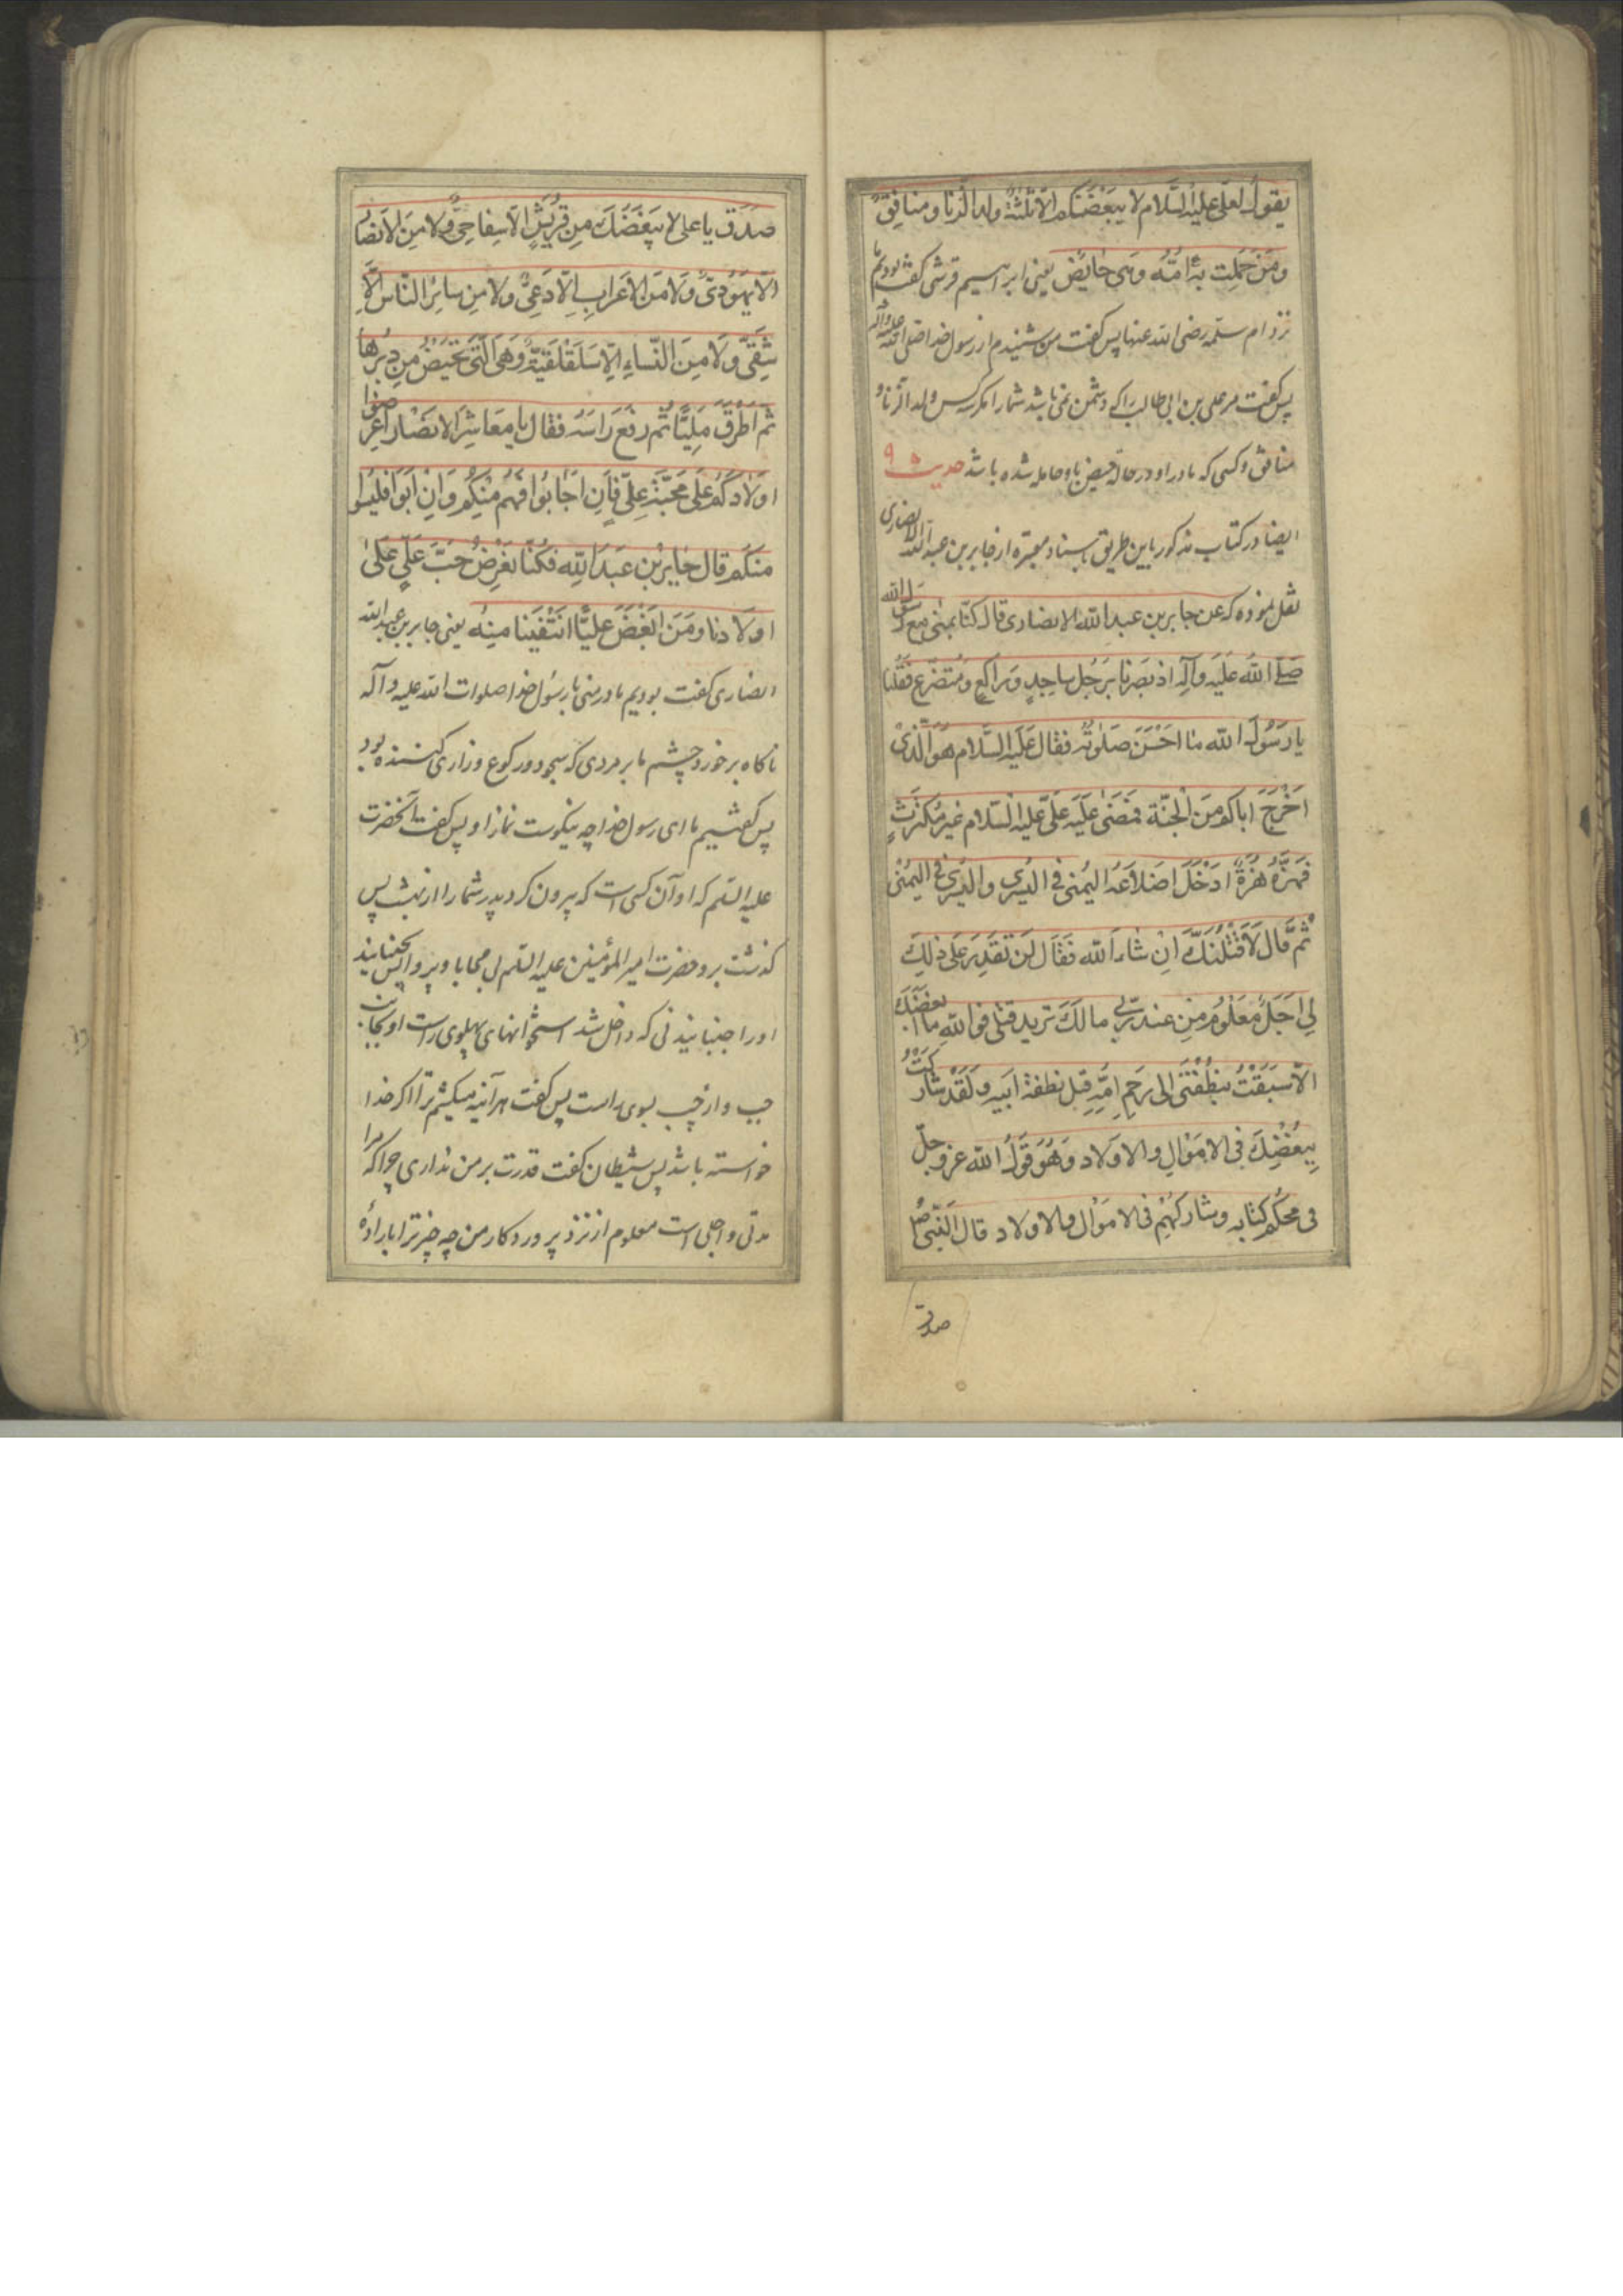 يقول لعلی علیه السلام لا یبغضکم الا ثلثة ولد الزنا و منافق
و من حملت به امه و هی حایض یعنی ابراهیم قرشی گفت بودیم ما
نزد ام سلمه رضی الله عنها پس گفت من شنیدم از رسول خدا صلی الله علیه و آله
پس گفت مر علی بن ابی طالب را که دشمن نمی باشد شما را مگر سه کس ولد الزنا و
منافق و کسی که مادر او در حالة حیض باو حامله شده باشد حدیث ۹
ایضا در کتاب مذکور باین طریق باسناد معتبره از جابر بن عبد الله انصاری
نقل نموده که عن جابر بن عبد الله الانصاری قال کنا بمنی مع رسول الله
صلی الله علیه وآله اذ بصرنا برجل ساجد و راکع و متضرع فقلنا
یا رسول الله ما احسن صلوته فقال علیه السلام هو الذی
اخرج اباکم من الجنة فمضی علیه علی علیه السلام غیر مکترث
فهزه هزة ادخل اضلاعه الیمنی فی الیسری والیسری فی الیمنی
ثم قال لاقتلنک ان شاء الله فقال لن تقدر علی ذلک
لی اجل معلوم من عند ربی مالک ترید قتلی فوالله ما ابغضک
الا سبقت بنطفتی الی رحم امه قبل نطفة ابیه و لقد شارکت
مبغضک فی الاموال والاولاد و هو قول الله عز و جل
فی محکم کتابه و شارکهم فی الاموال والاولاد قال النبی ص
صدق
صدق یا علی لا یبغضک من قریش الا سفاحی ولا من الانصار
الا یهودی ولا من الاعراب الا دعی ولا من سایر الناس الا
شقی ولا من النساء الا سلقلقیة وهی التی تحیض من دبرها
ثم اطرق ملیا ثم رفع راسه فقال یا معاشر الانصار اعرضوا
اولادکم علی محبة علی فان اجابوا فهم منکم وان ابوا فلیسوا
منکم قال جابر بن عبد الله فکنا نعرض حب علی علی
اولادنا و من ابغض علیا انتفینا منه یعنی جابر بن عبد الله
انصاری گفت بودیم ما در منی با رسول خدا صلوات الله علیه و آله
ناکاه برخورد چشم ما بر مردی که سجود و رکوع و زاری کننده بود
پس گفتیم ما ای رسول خدا چه نیکوست نماز او پس گفت آنحضرت
علیه السلم که او آن کسی است که بیرون کرد پدر شما را از بهشت پس
گذشت برو حضرت امیر المؤمنین علیه السلم بی محابا و پروا پس جنبانید
او را جنبانیدنی که داخل شد استخوانهای پهلوی راست او بجانب
چپ و از چپ بسوی راست پس گفت هر آئینه میکشم ترا اگر خدا
خواسته باشد پس شیطان گفت قدرت بر من نداری چرا که مرا
مدتی و اجلی است معلوم از نزد پروردکار من چه چیز ترا باراده